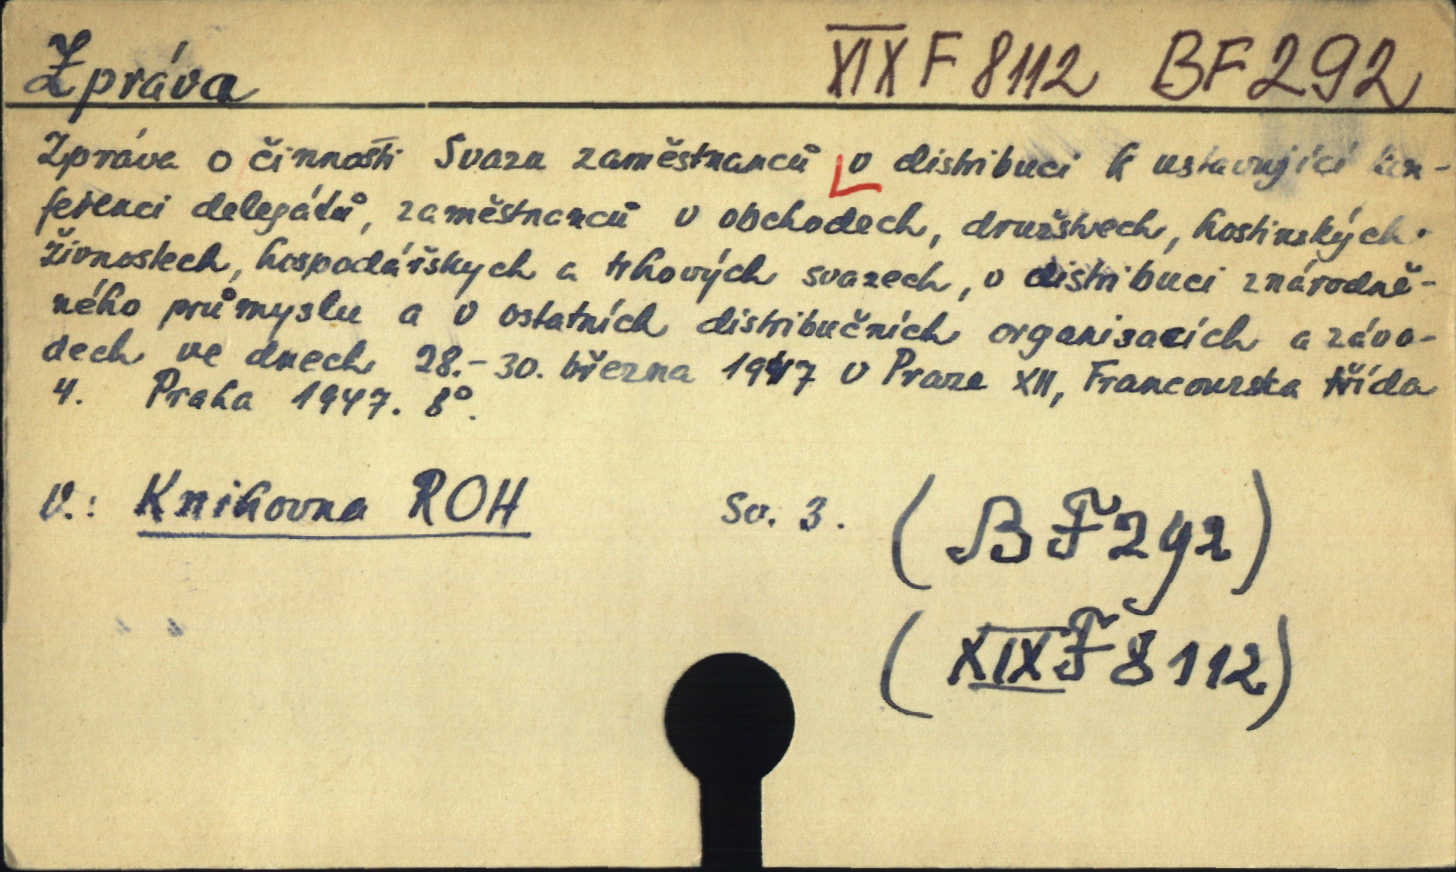 Zpráva XIX F 8112 BF 292
Zpráva o činnosti Svazu zaměstnanců v distribuci k ustavující kon-
ferenci delegátů, zaměstnanců v obchodech, družstvech, hostinských
živnostech, hospodářskych a trhových svazech, v distribuci znárodně-
ného průmyslu a v ostatních distribučních organisacích a závo-
dech ve dnech 28.-30. března 1947 v Praze XII, Francouzska třída
4. Praha 1947. 8°.
V.: Knihovna ROH Sv. 3. (BF292)
(XIXF8112)